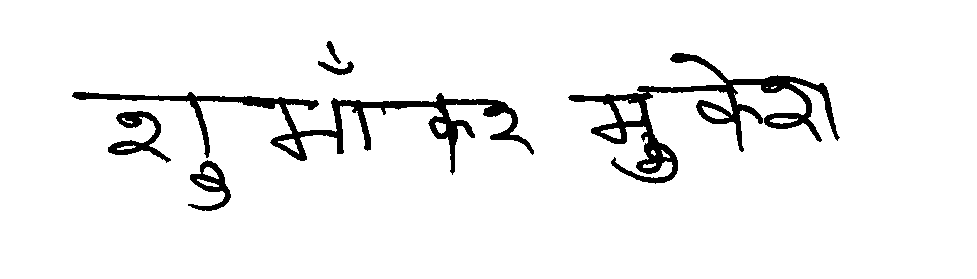 शुमाँकर मुकेश